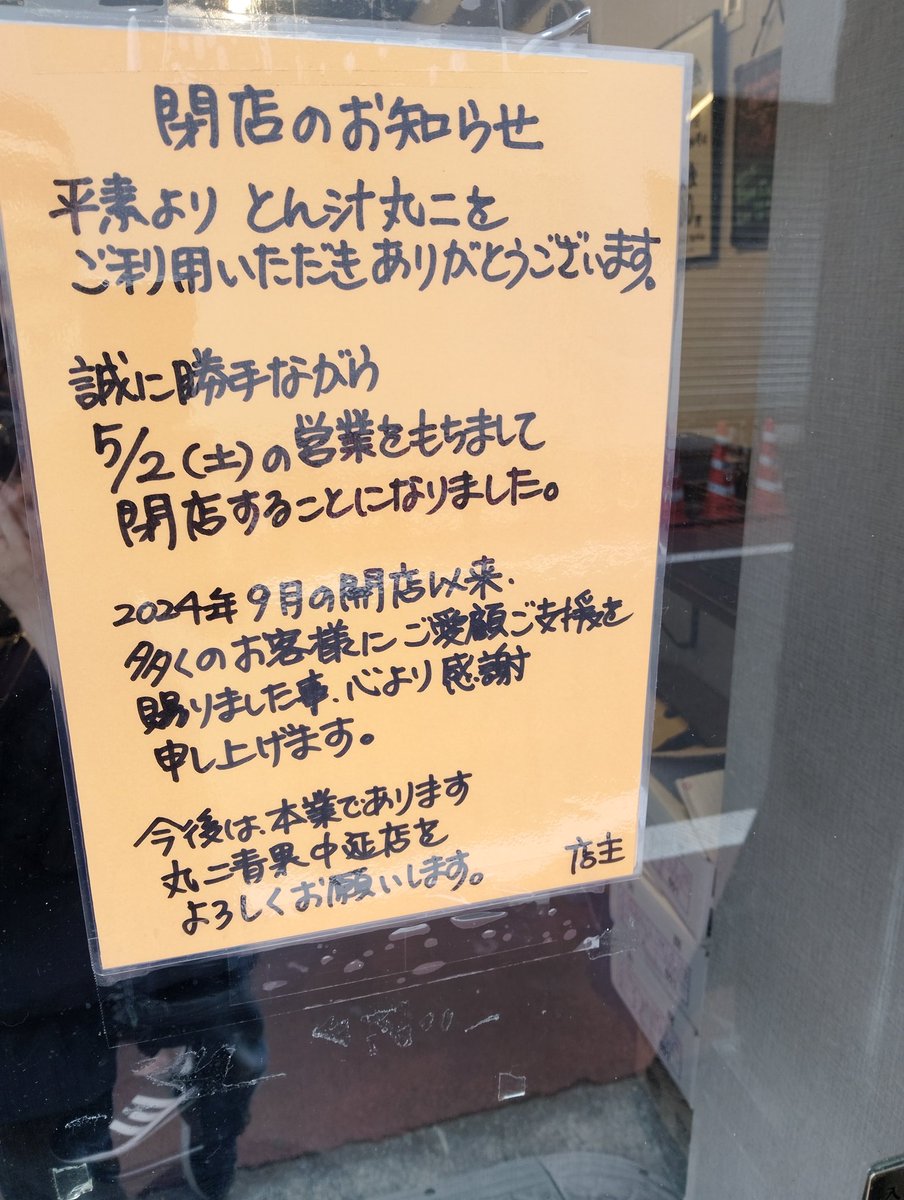 閉店のお知らせ
平素より とん汁丸二を
ご利用いただきありがとうございます。
誠に勝手ながら
5/2(土)の営業をもちまして
閉店することになりました。
2024年9月の開店以来、
多くのお客様にご愛顧ご支援を
賜りました事、心より感謝
申し上げます。
今後は、本業であります
丸二青果中延店を
よろしくお願いします。
店主